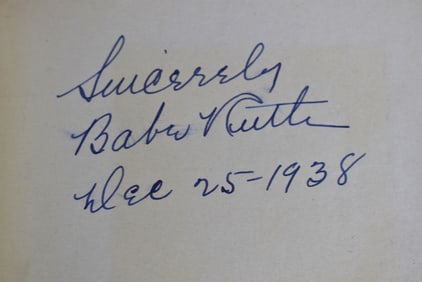 Sincerely
Babe Ruth
Dec 25-1938